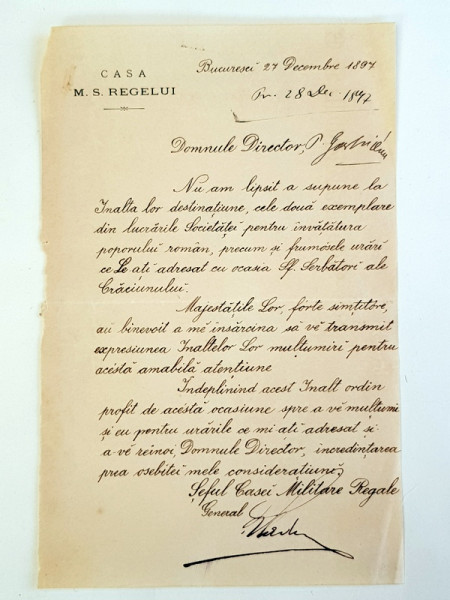 CASA
M. S. REGELUI
Bucuresci 27 Decembre 1897
28 Dec 1897
Domnule Director,
Nu am lipsit a supune la
Inalta lor destinațiune, cele două exemplare
din lucrările Societăței pentru învătătura
poporului român, precum și frumósele urări
ce Le ați adresat cu ocasia Sf. Serbători ale
Crăciunului.
Majestățile Lor, forte simțitóre,
au binevoit a mĕ însărcina să vĕ transmit
expresiunea Inaltelor Lor multumiri pentru
acéstă amabilă atențiune
Indeplinind acest Inalt ordin
profit de acéstă ocasiune spre a vĕ mulțumi
și eu pentru urările ce mi ati adresat si
a vĕ reinoi, Domnule Director, incredințarea
prea osebitei mele considerațiunĭ,
Șeful Casei Militare Regale
General